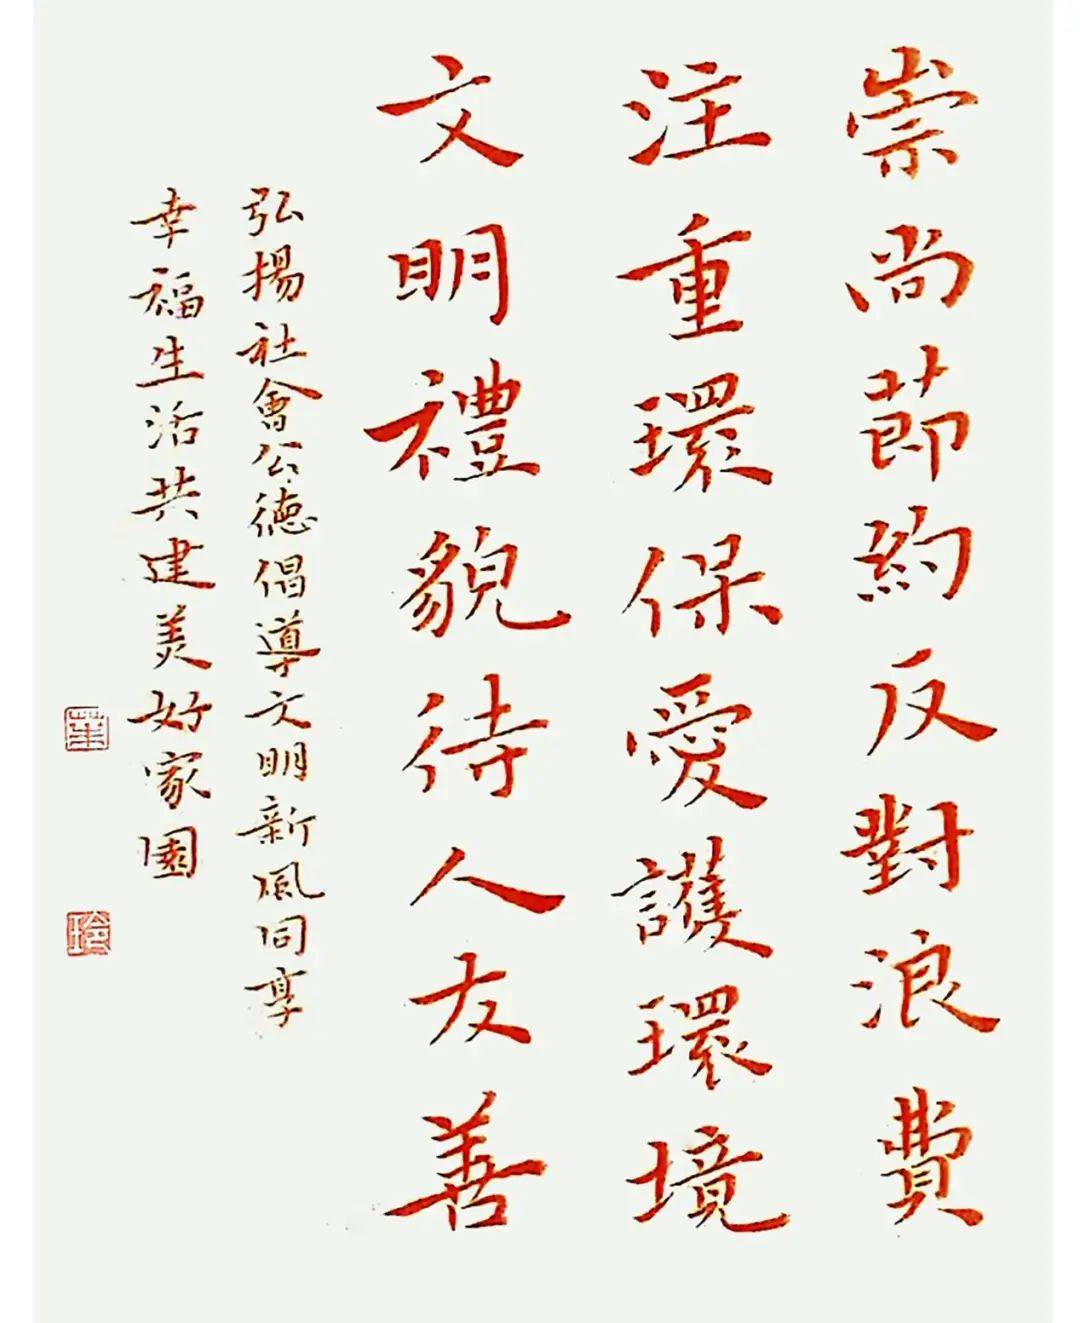 崇尚節約反對浪費
注重環保愛護環境
文明禮貌待人友善
弘揚社會公德倡導文明新風同享
幸福生活共建美好家園
葉
玲